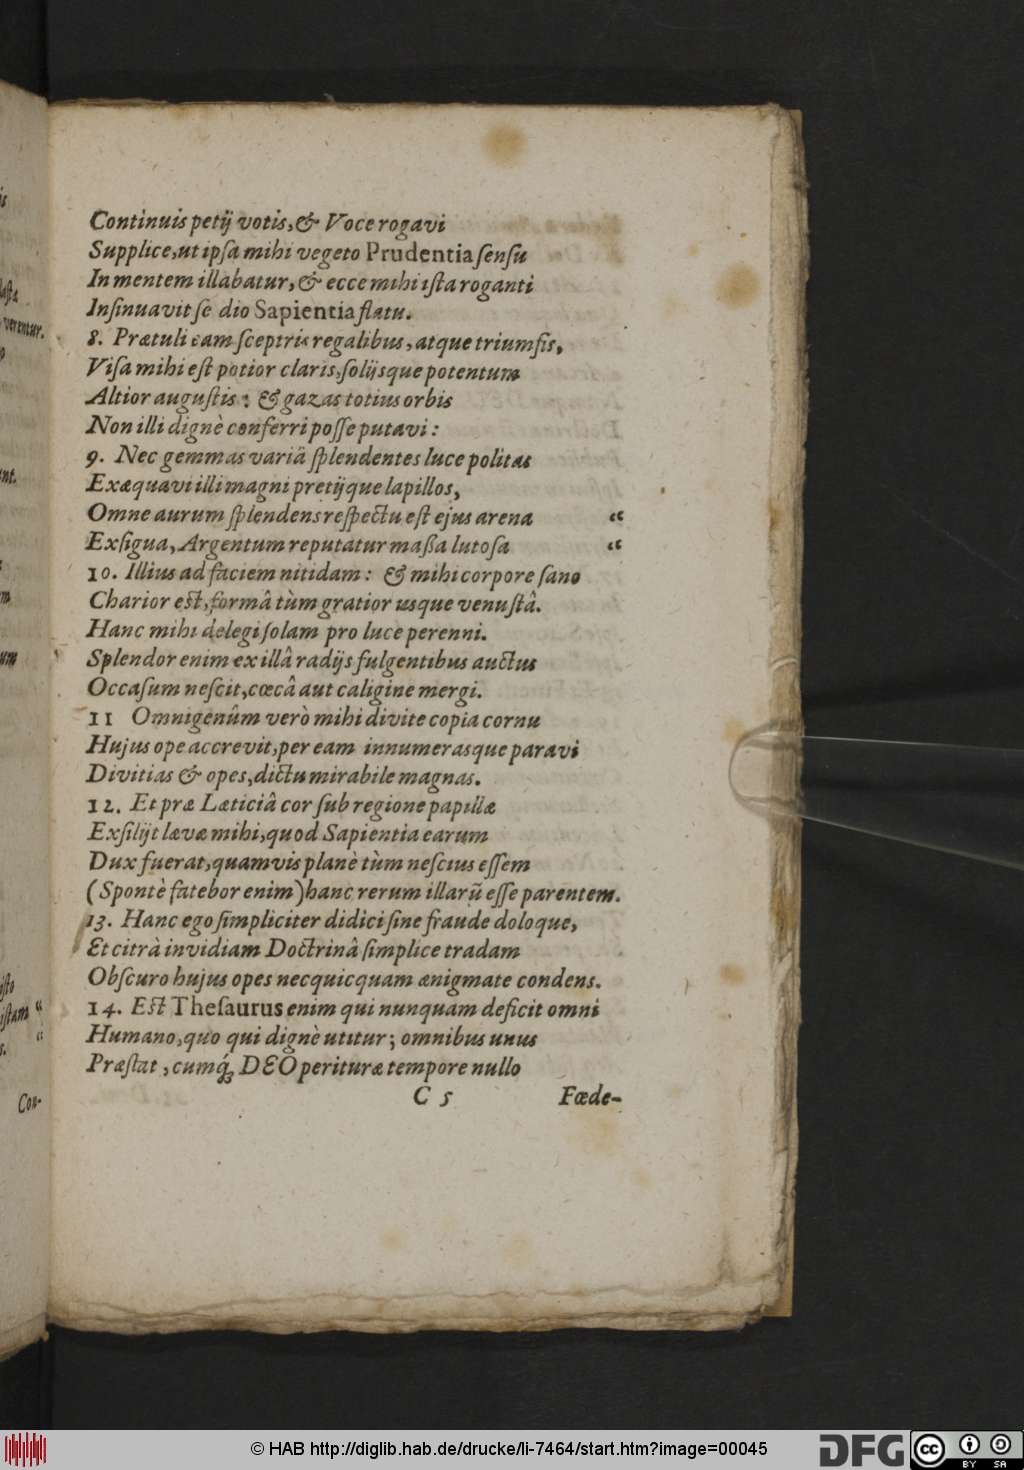 Continuis petij votis, & Voce rogavi
Supplice, ut ipſa mihi vegeto Prudentia ſenſu
In mentem illabatur, & ecce mihi iſta roganti
Inſinuavit ſe dio Sapientia flatu.
8. Prætuli eam ſceptris regalibus, atque triumfis,
Viſa mihi eſt potior claris, ſolijsque potentum
Altior auguſtis: & gazas totius orbis
Non illi dignè conferri poſſe putavi:
9. Nec gemmas variâ ſplendentes luce politas
Exæquavi illi magni pretijque lapillos,
Omne aurum ſplendens reſpectu eſt ejus arena "
Exſigua, Argentum reputatur maßa lutoſa "
10. Illius ad faciem nitidam: & mihi corpore ſano
Charior est, formâ tùm gratior usque venuſtâ.
Hanc mihi delegi ſolam pro luce perenni.
Splendor enim ex illâ radijs fulgentibus auctus
Occaſum neſcit, cœcâ aut caligine mergi.
11 Omnigenûm verò mihi divite copia cornu
Hujus ope accrevit, per eam innumerasque paravi
Divitias & opes, dictu mirabile magnas.
12. Et præ Læticiâ cor ſub regione papillæ
Exſilijt lævæ mihi, quod Sapientia earum
Dux fuerat, quamvis planè tùm neſcius eſſem
(Spontè fatebor enim) hanc rerum illarũ eſſe parentem.
13. Hanc ego ſimpliciter didici ſine fraude doloque,
Et citrà invidiam Doctrinâ ſimplice tradam
Obſcuro hujus opes necquicquam ænigmate condens.
14. Est Theſaurus enim qui nunquam deficit omni
Humano, quo qui dignè utitur; omnibus unus
Præſtat, cumq́; DEO perituræ tempore nullo
C 5 Fœde-
laſta
verentur.
iſtam "
Con-
© HAB http://diglib.hab.de/drucke/li-7464/start.htm?image=00045
DFG
cc
BY SA